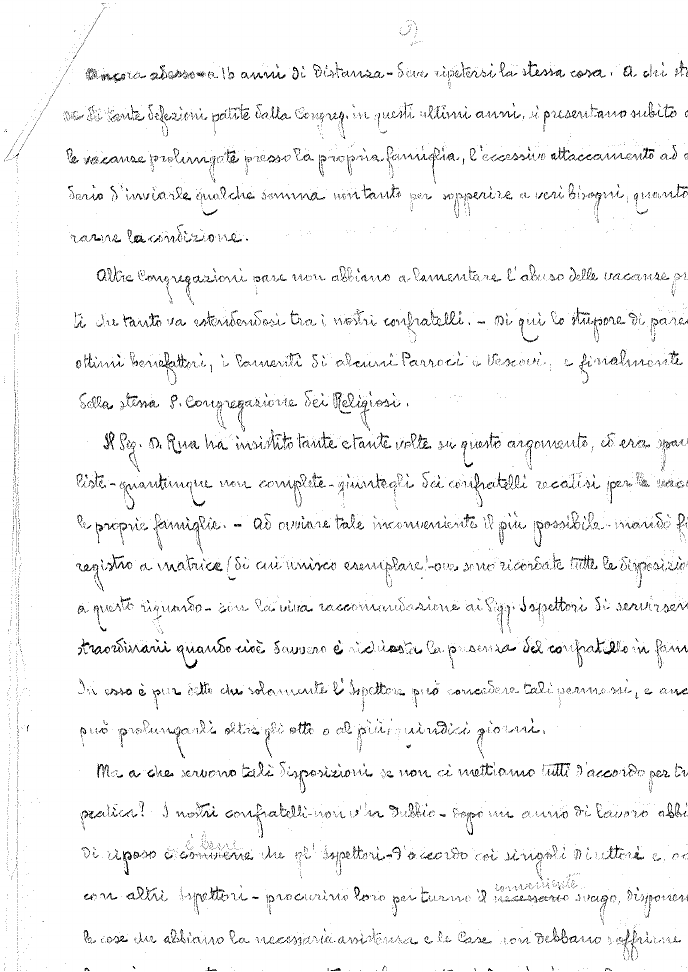 2
Ancora adesso - a 16 anni di distanza - deve ripetersi la stessa cosa. A chi
se di tante defezioni patite dalla Congreg. in questi ultimi anni, si presentano subito
le vacanze prolungate presso la propria famiglia, l'eccessivo attaccamento ad
derio d'inviarle qualche somma non tanto per sopperire a veri bisogni, quanto
rarne la condizione.
Altre Congregazioni pare non abbiano a lamentare l'abuso delle vacanze
ti che tanto va estendendosi tra i nostri confratelli. - Di qui lo stupore di
ottimi benefattori, i lamenti di alcuni Parroci e Vescovi, e finalmente
della stessa S. Congregazione dei Religiosi.
Il Sig. D. Rua ha insistito tante e tante volte su questo argomento, ed era
liste - quantunque non complete - giuntegli dei confratelli recatisi per le
le proprie famiglie. - Ad ovviare tale inconveniente il più possibile - mandò
registro a matrice (di cui unisco esemplare) - ove sono ricordate tutte le
a questo riguardo - con la viva raccomandazione ai Sigg. Ispettori di
straordinarii quando cioè davvero è richiesta la presenza del confratello in
In esso è pur detto che solamente l'Ispettore può concedere tali permessi, e
può prolungarli oltre gli otto o al più, quindici giorni.
Ma a che servono tali disposizioni se non ci mettiamo tutti d'accordo per
pratica? I nostri confratelli - non v'è dubbio - dopo un anno di lavoro
è bene
di riposo e conviene che gl'Ispettori - d'accordo coi singoli Direttori e
conveniente
con altri Ispettori - procurino loro per turno il necessario svago,
le cose che abbiano la necessaria assistenza e le Case non debbano soffrirne